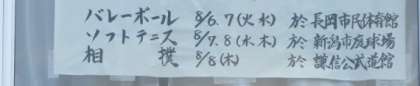 バレーボール 8/6.7(火水) 於 長岡市民体育館
ソフトテニス 8/7.8(水.木) 於 新潟市庭球場
相撲 8/8(木) 於 謙信公武道館